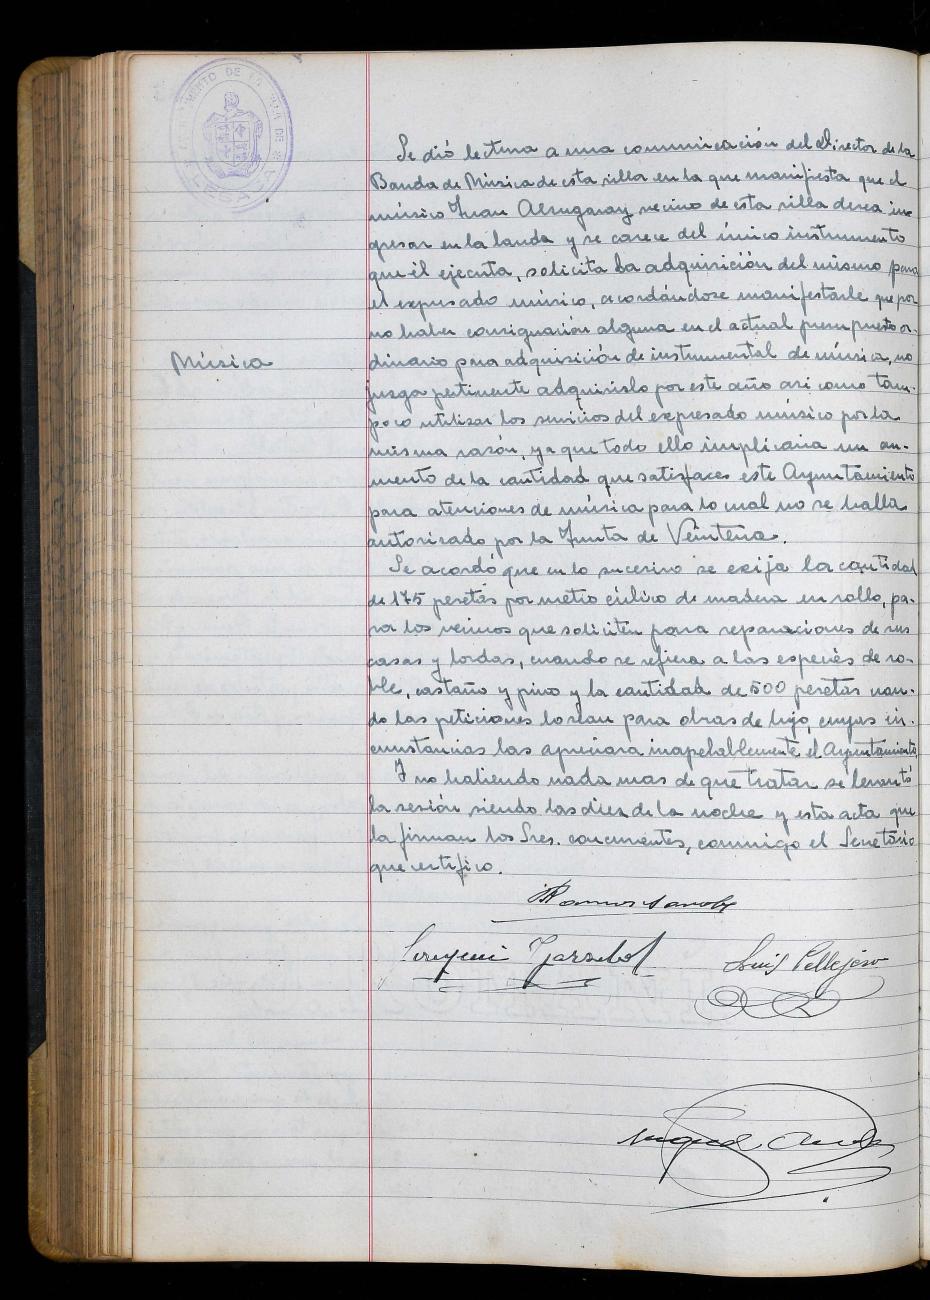 AYUNTAMIENTO DE LA VILLA DE
LESACA
Se dió lectura a una comunicación del Director de la
Banda de Música de esta villa en la que manifiesta que el
músico Juan Alzugaray vecino de esta villa desea in-
gresar en la banda y se carece del único instrumento
que él ejecuta, solicita la adquisición del mismo para
el expresado músico, acordándose manifestarle que por
no haber consignación alguna en el actual presupuesto or-
dinario para adquisición de instrumental de música, no
Música
juzga pertinente adquirirlo por este año asi como tam-
poco utilizar los servicios del expresado músico por la
misma razón, ya que todo ello implicaria un au-
mento de la cantidad que satisface este Ayuntamiento
para atenciones de música para lo cual no se halla
autorizado por la Junta de Veintena.
Se acordó que en lo sucesivo se exija la cantidad
de 175 pesetas por metro cúbico de madera en rollo, pa-
ra los vecinos que soliciten para reparaciones de sus
casas y bordas, cuando se refiera a las especies de ro-
ble, castaño y pino y la cantidad de 500 pesetas cuan-
do las peticiones lo sean para obras de lujo, cuyas cir-
cunstancias las apreciara inapelablemente el Ayuntamiento
Y no habiendo nada mas de que tratar se levantó
la sesión siendo las diez de la noche y esta acta que
la firman los Sres. concurrentes, conmigo el Secretario
que certifico.
Ramon
Luis Pellejero
Miguel